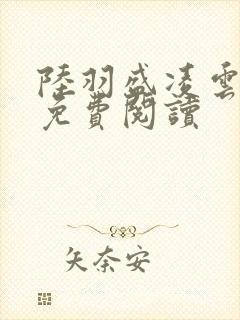 陸羽盛凌雲
免費閱讀
矢奈安